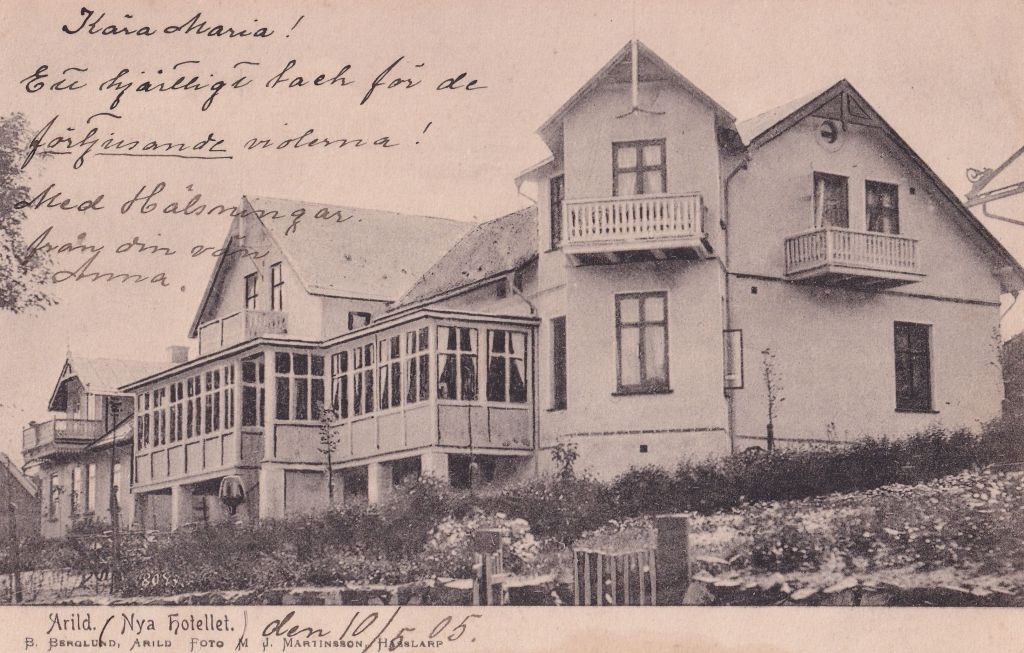 Kära Maria!
Ett hjärtligt tack för de
förtjusande violerna!
Med Hälsningar.
från din vän
Anna.
Arild. (Nya Hotellet.) den 10/5 05.
B. Berglund, Arild Foto M J. Martinsson, Hasslarp